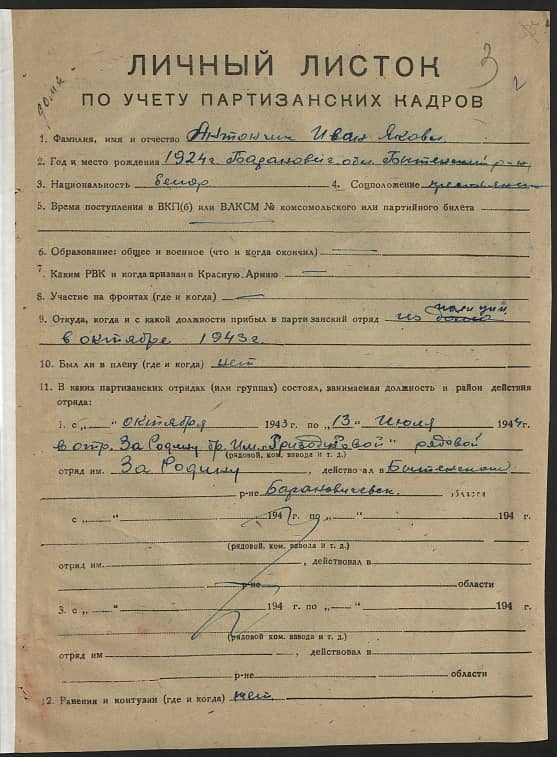 дома
3
2
ЛИЧНЫЙ ЛИСТОК
ПО УЧЕТУ ПАРТИЗАНСКИХ КАДРОВ
1. Фамилия, имя и отчество Антончик Иван Яковл.
2. Год и место рождения 1924 г Барановичс. обл. Бытенский р-н
3. Национальность белор 4. Соцположение крестьянин
5. Время поступления в ВКП(б) или ВЛКСМ № комсомольского или партийного билета
6. Образование: общее и военное (что и когда окончил) —
7. Каким РВК и когда призван в Красную Армию —
8. Участие на фронтах (где и когда) —
9. Откуда, когда и с какой должности прибыл в партизанский отряд из полиции
в октябре 1943 г.
10. Был ли в плену (где и когда) нет
11. В каких партизанских отрядах (или группах) состоял, занимаемая должность и район действия
отряда:
1. с „—“ октября 1943 г. по „13“ Июля 1944 г.
в отр. За Родину бр. Им. „Гризодубовой“ рядовой
(рядовой, ком. взвода и т. д.)
отряд им. За Родину, действовал в Бытенском
р-не Барановичевск. области
с „—“ 194 г. по „—“ 194 г.
(рядовой, ком. взвода и т. д.)
отряд им. , действовал в
р-не области
3. с „—“ 194 г. по „—“ 194 г.
(рядовой ком. взвода и т. д.)
отряд им , действовал в
р-не области
12. Ранения и контузии (где и когда) нет.